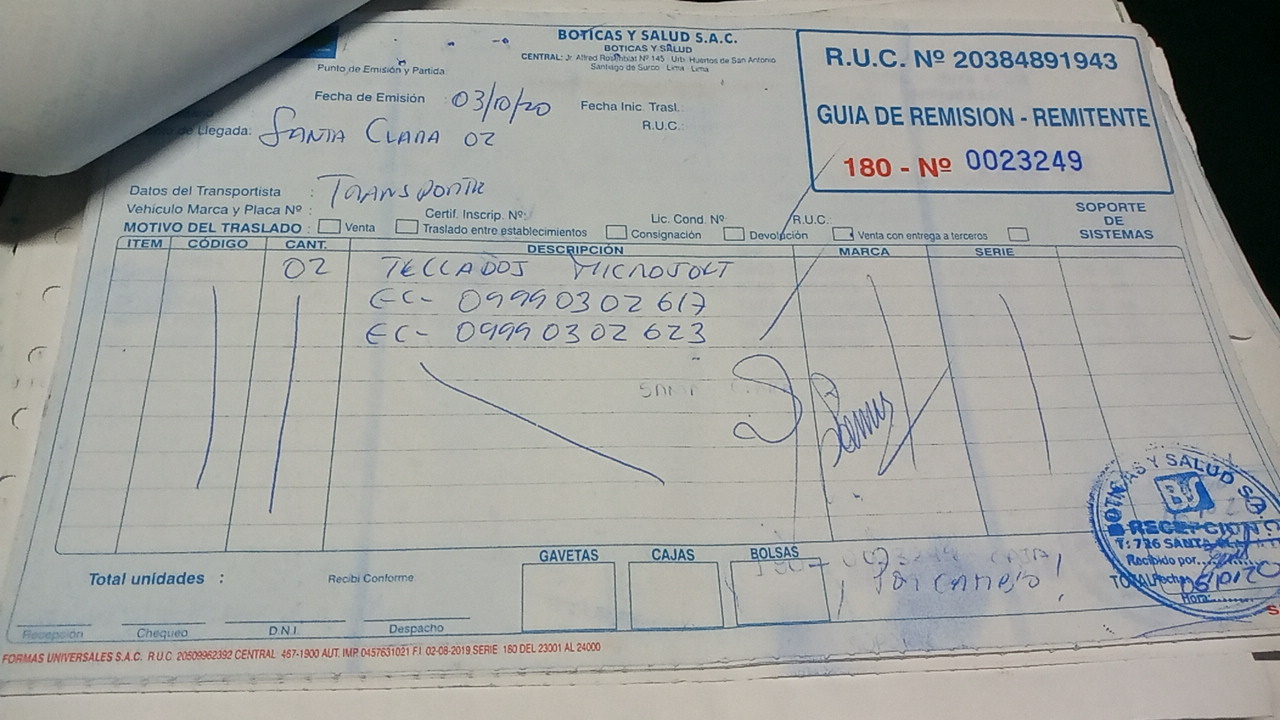 BOTICAS Y SALUD S.A.C.
BOTICAS Y SALUD
CENTRAL: Jr. Alfred Rosenblat Nº 145 - Urb. Huertos de San Antonio
Santiago de Surco - Lima - Lima
R.U.C. Nº 20384891943
GUIA DE REMISION - REMITENTE
180 - Nº 0023249
Punto de Emisión y Partida
Fecha de Emisión 03/10/20 Fecha Inic. Trasl.:
de Llegada: SANTA CLARA 02 R.U.C.:
Datos del Transportista : TRANSPORTE
Vehiculo Marca y Placa Nº : Certif. Inscrip. Nº: Lic. Cond. Nº: R.U.C.:
MOTIVO DEL TRASLADO : Venta Traslado entre establecimientos Consignación Devolución Venta con entrega a terceros
SOPORTE
DE
SISTEMAS
ITEM CÓDIGO CANT. DESCRIPCIÓN MARCA SERIE
02 TECLADOS MICROSOFT
EC- 09990302617
EC- 09990302623
GAVETAS CAJAS BOLSAS
Total unidades : Recibi Conforme
Recepción Chequeo D.N.I. Despacho
BOTICAS Y SALUD S.A.C.
BS
RECEPCION
Recibido por
05/10/20
Hora:
FORMAS UNIVERSALES S.A.C. R.U.C 20509962392 CENTRAL 467-1900 AUT. IMP. 0457631021 F.I. 02-08-2019 SERIE 180 DEL 23001 AL 24000